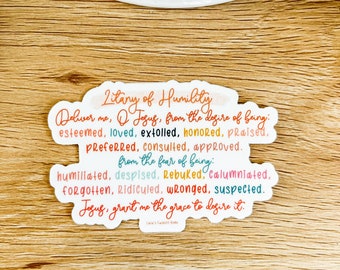 Litany of Humility
Deliver me, O Jesus, from the desire of being:
esteemed, loved, extolled, honored, praised,
preferred, consulted, approved.
from the fear of being:
humiliated, despised, rebuked, calumniated,
forgotten, ridiculed, wronged, suspected.
Jesus, grant me the grace to desire it.